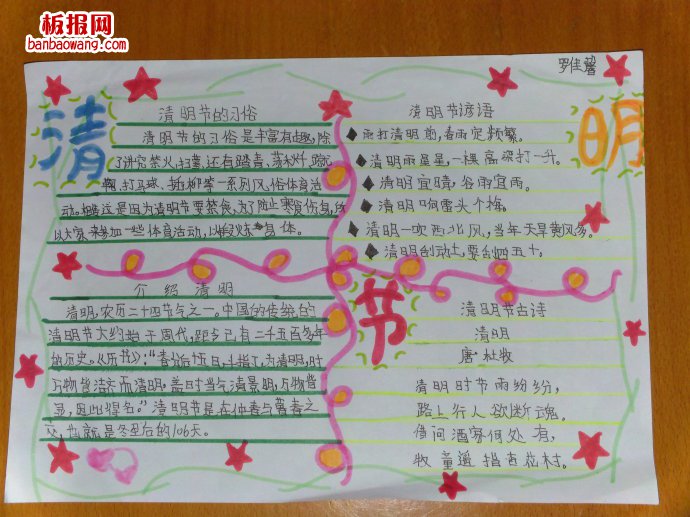 板报网
banbaowang.com
罗佳馨
清
明
节
清明节的习俗
清明节的习俗是丰富有趣,除
了讲究禁火、扫墓,还有踏青、荡秋千、蹴
鞠、打马球、插柳等一系列风俗体育活
动。相传这是因为清明节要禁食,为了防止寒食伤身,所
以大家来参加一些体育活动,以锻炼身体。
清明节谚语
雨打清明前,春雨定频繁。
清明雨星星,一棵高粱打一升。
清明宜晴,谷雨宜雨。
清明响雷头个梅。
清明一吹西北风,当年天旱黄风多。
清明刮动土,要刮四五十。
介绍清明
清明,农历二十四节气之一。中国的传统的
清明节大约始于周代,距今已有二千五百多年
的历史。《历书》:“春分后十五日,斗指丁,为清明,时
万物皆洁齐而清明。盖时当气清景明,万物皆
显,因此得名。”清明节是在仲春与暮春之
交,也就是冬至后的106天。
清明节古诗
清明
唐 杜牧
清明时节雨纷纷,
路上行人欲断魂。
借问酒家何处有,
牧童遥指杏花村。